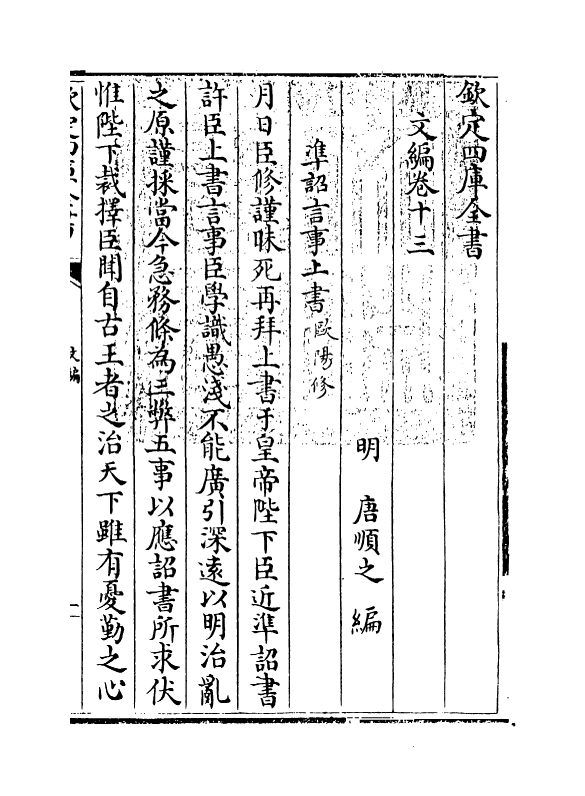 欽定四庫全書
文編卷十三
明 唐順之 編
準詔言事上書歐陽修
月日臣修謹昧死再拜上書于皇帝陛下臣近準詔書
許臣上書言事臣學識愚淺不能廣引深遠以明治亂
之原謹採當今急務條為三弊五事以應詔書所求伏
惟陛下裁擇臣聞自古王者之治天下雖有憂勤之心
文編